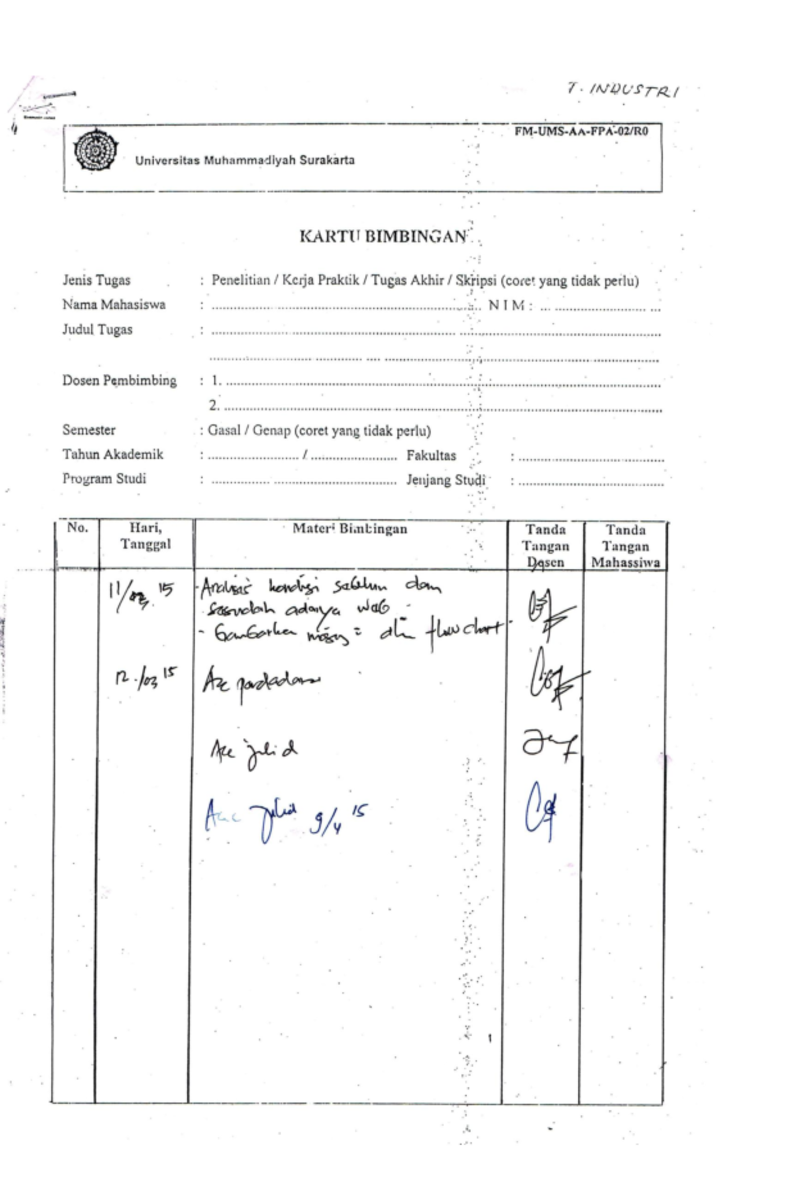 T. INDUSTRI
FM-UMS-AA-FPA-02/R0
Universitas Muhammadiyah Surakarta
KARTU BIMBINGAN
Jenis Tugas : Penelitian / Kerja Praktik / Tugas Akhir / Skripsi (coret yang tidak perlu)
Nama Mahasiswa : .......... N I M : ..........
Judul Tugas : ..........
Dosen Pembimbing : 1. ..........
2. ..........
Semester : Gasal / Genap (coret yang tidak perlu)
Tahun Akademik : .......... / .......... Fakultas : ..........
Program Studi : .......... Jenjang Studi : ..........
No. Hari, Tanggal Materi Bimbingan Tanda Tangan Dosen Tanda Tangan Mahassiwa
11/03 15 - Analisis kondisi sebelum dan
sesudah adanya web
- Gambarkan masing = dlm flow chart
12/03 15 Acc pendadaran
Acc jilid
Acc jilid 9/4 15